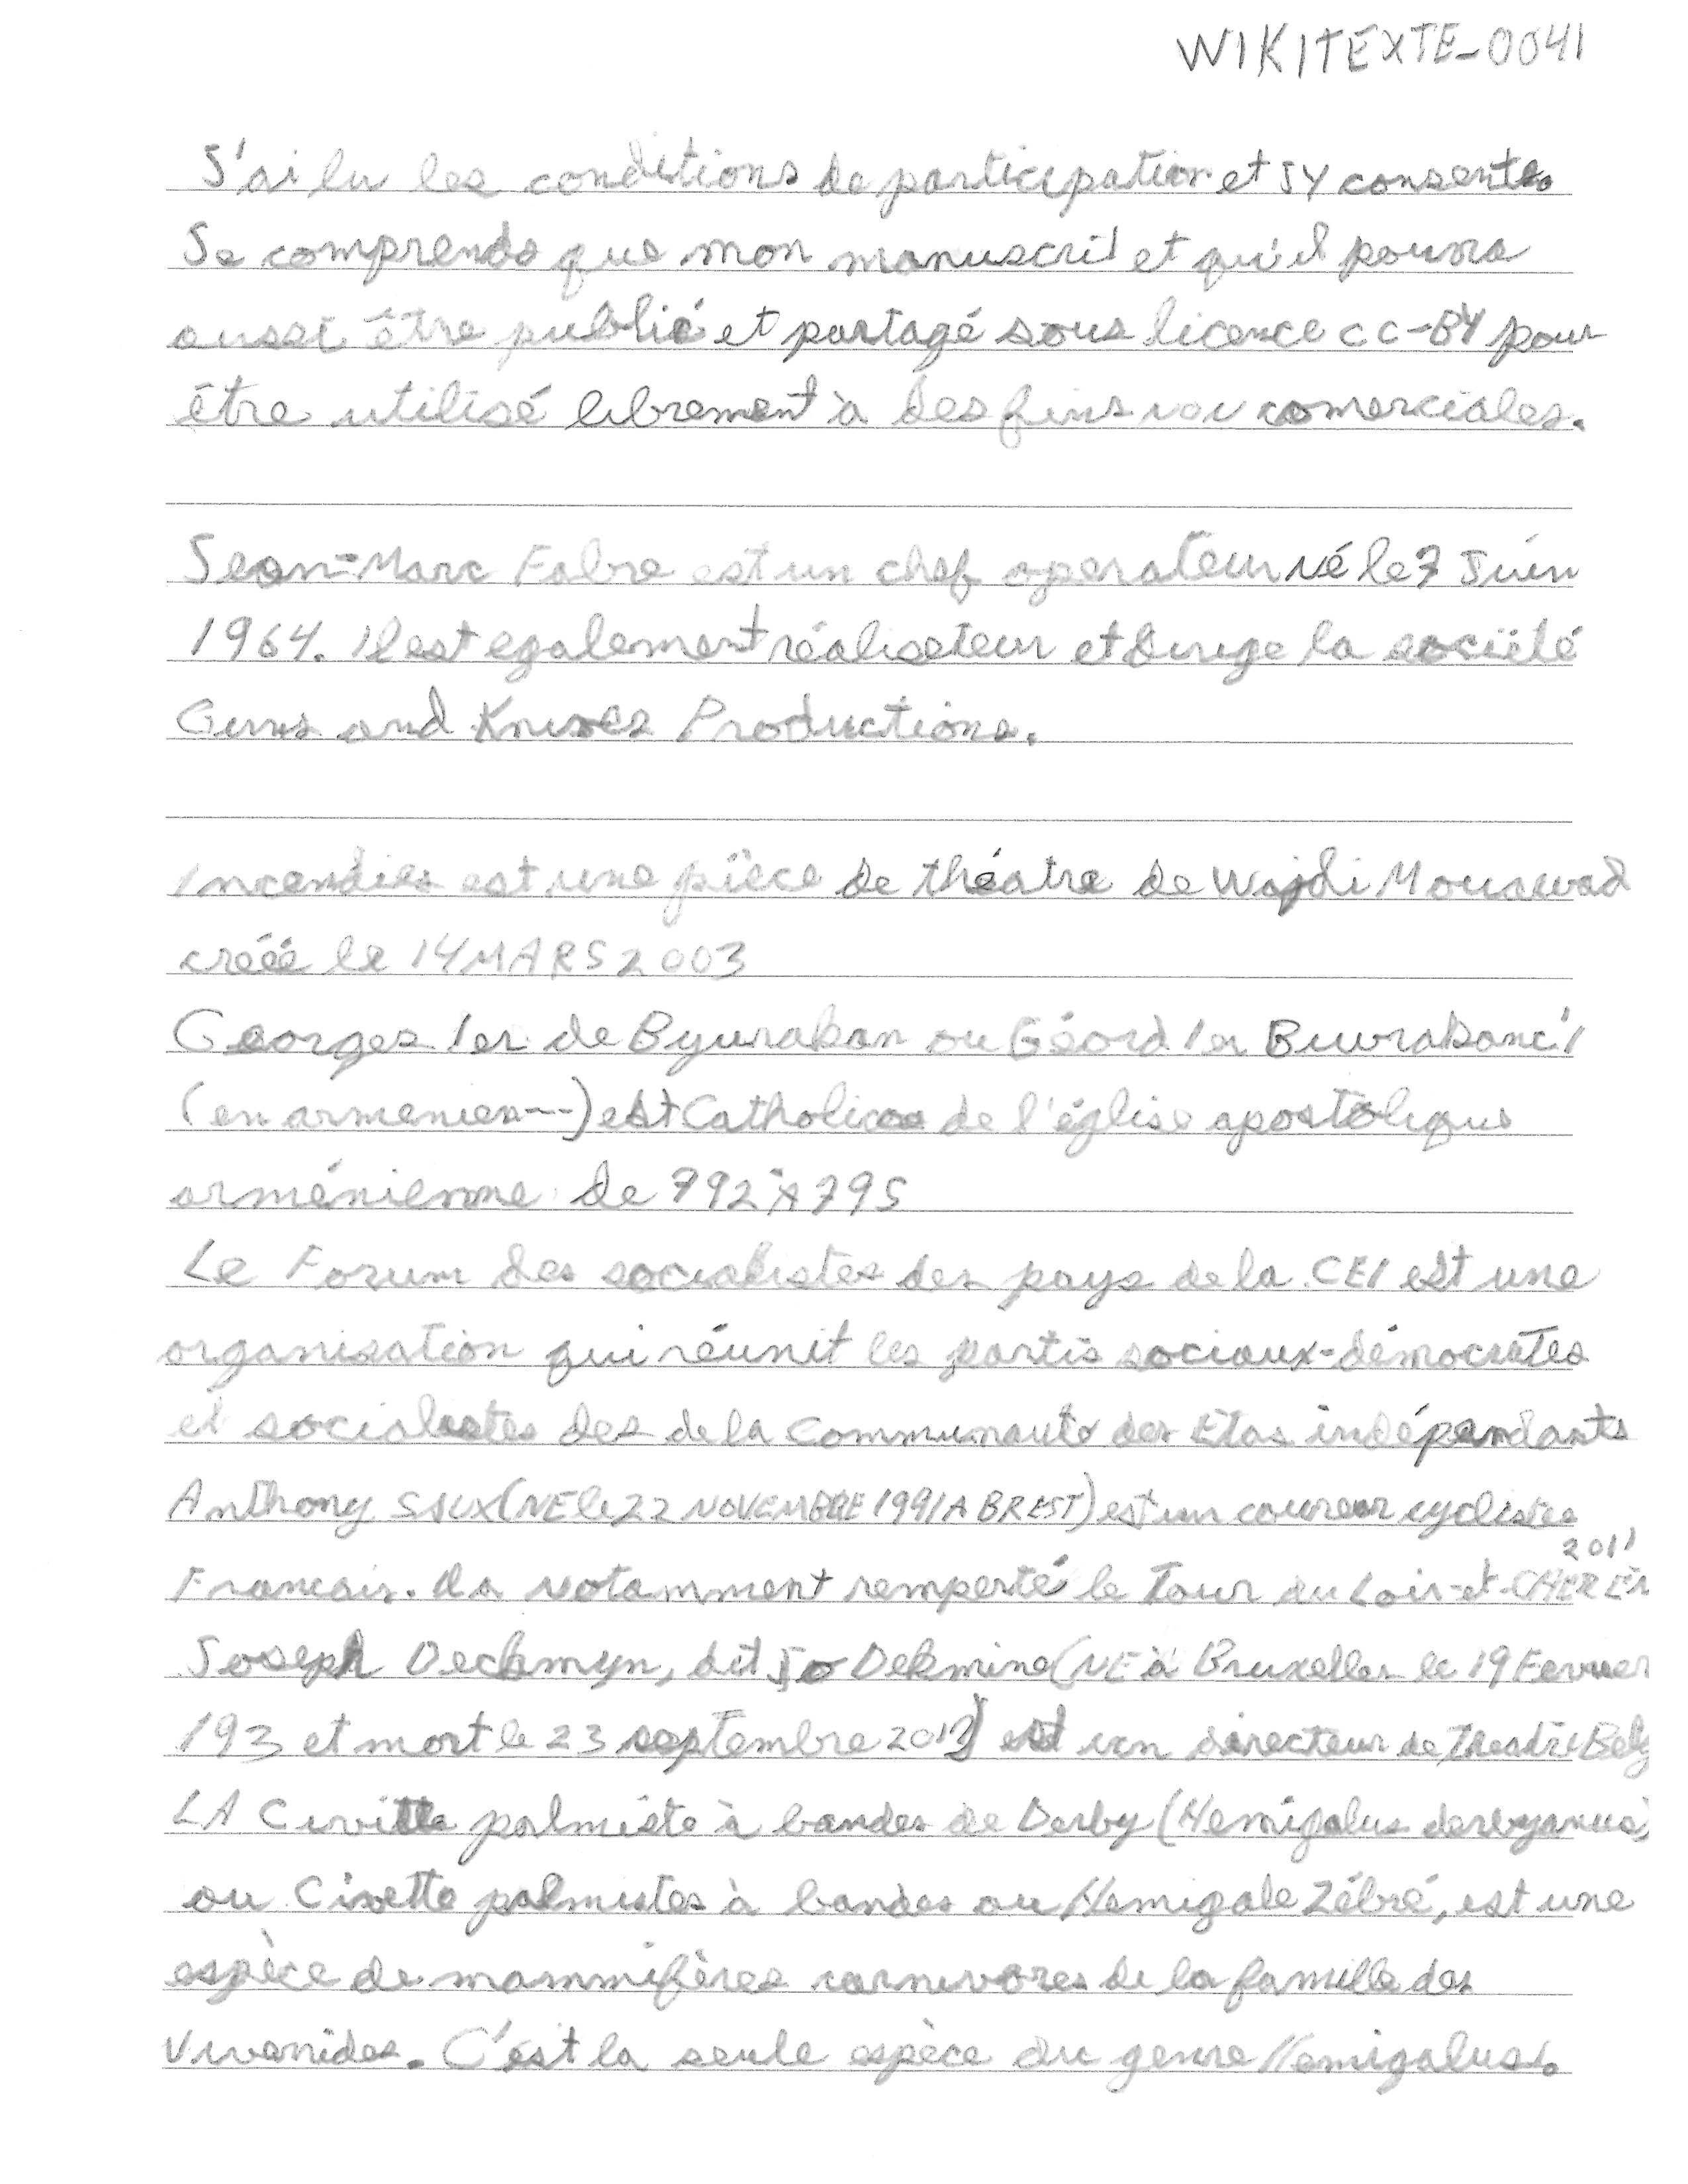 WIKITEXTE-0041
J'ai lu les conditions de participation et JY consente.
Je comprends que mon manuscrit et qu'il pourra
aussi être publié et partagé sous licence CC-BY pour
être utilisé librement à des fins non comerciales.
Jean-Marc Fabre est un chef operateur né le 7 Juin
1964. Il est egalement réaliseteur et dirige la société
Guns and Knives Productions.
Incendies est une pièce de théatre de Wajdi Mouawad
créée le 14 MARS 2003
Georges 1er de Byurakan ou Géord 1er
(en armenien---) est Catholicos de l'église apostolique
arménienne de 792 à 795
Le Forum des socialistes des pays de la CEI est une
organisation qui réunit les partis sociaux-démocrates
et socialistes des de la Communauté des Etas indépendants
Anthony (NE le 22 NOVEMBRE 1991 A BREST) est un coureur cycliste
Francais. Il a notamment remperté le Tour du Loir-et-CHER EN 2011
Joseph Deckmyn, dit Jo Dekmine (NE à Bruxelles le 19 Fevrier
193 et mort le 23 septembre 2017) est un directeur de Theatre Belg
LA Civitte palmiste à bandes de Derby (Hemigalus derbyanus)
ou Civette palmistes à bandes ou Hemigale Zébré, est une
espèce de mammifères carnivores de la famille des
Vivenides. C'est la seule espèce du genre Hemigalus.